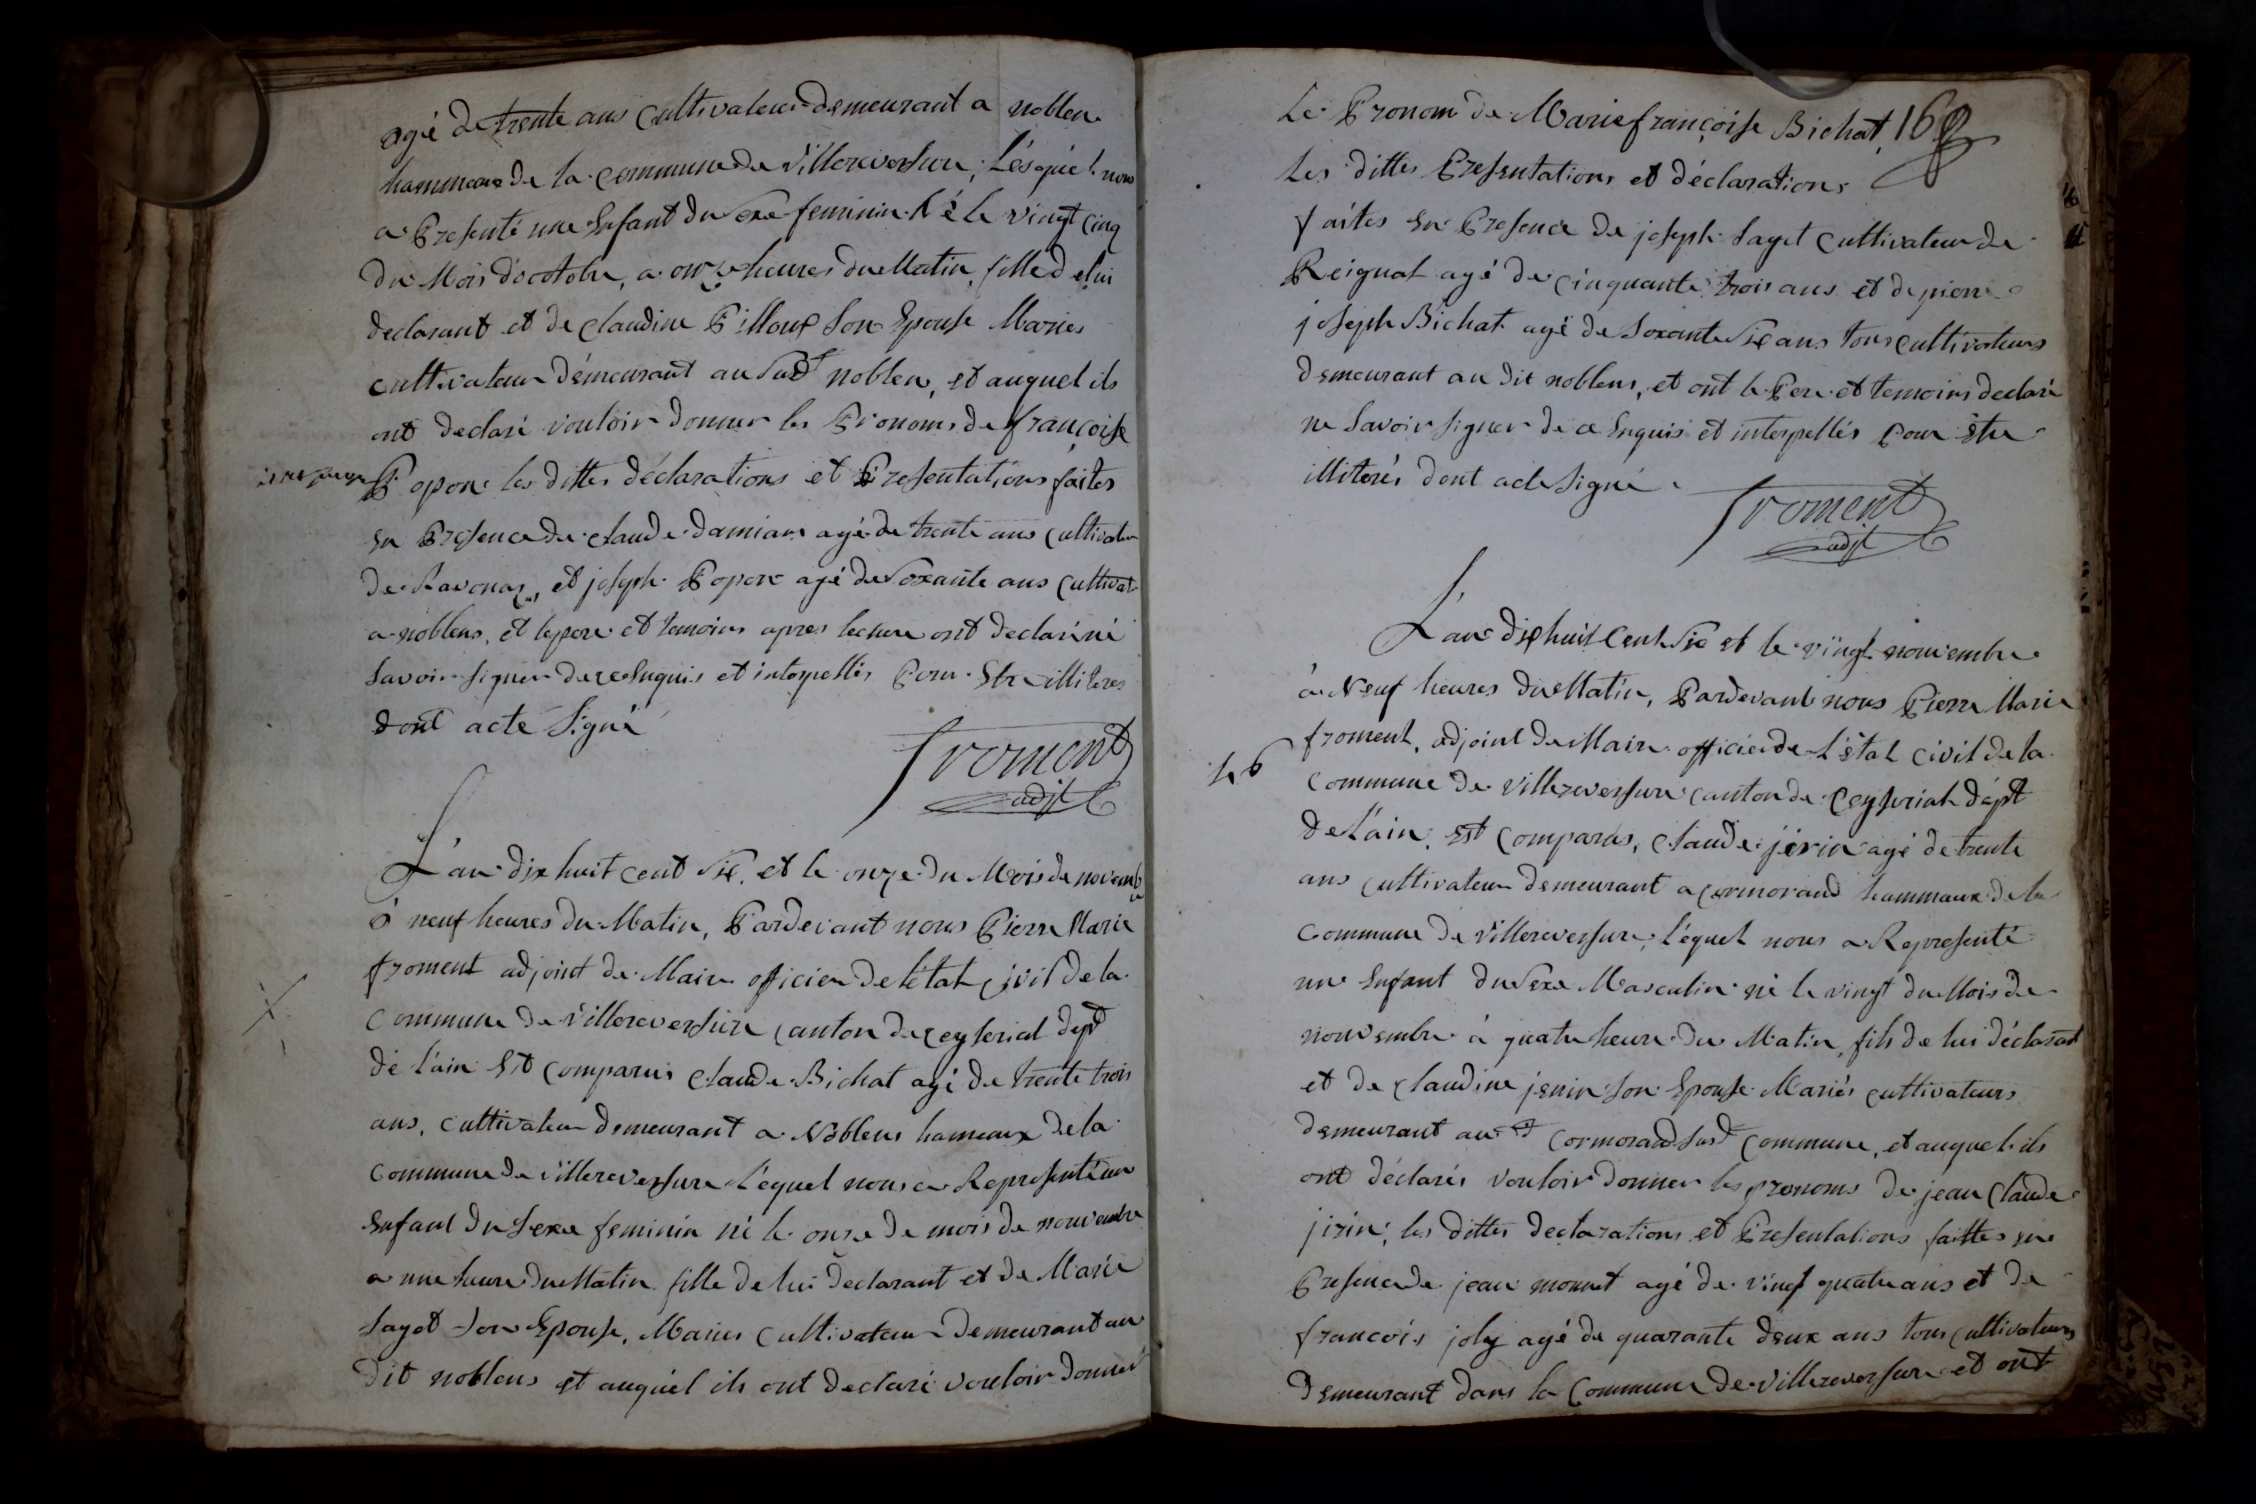 agé de trente ans Cultivateur demeurant a noblen
hammeaux de la commune de Villereversure, Lésquel nous
a Presenté une Enfant du sexe feminin Né le vingt cinq
du Mois d'octobre, a onze heures du Matin, fille de lui
declarant et de claudine Pilloux Son Epouse Mariés
cultivateur démeurant au Sudt noblen, et auquel ils
ont declaré vouloir donner les Pronoms de françoise
Popon les dittes déclarations et Presentations faites
En Presence de claude damians agé de trente ans Cultivateur
de Ravonaz, et joseph Popon agé de Soxante ans Cultivat
a noblens, et le pere et temoins apres lecture ont declaré ne
Savoir Signer de ce Enquis et interpellés Pour Etre illiteres
dont acte Signé
froment
adjt
L'an dix huit cent Six, et le onze du Mois de novemb
à neuf heures du Matin, Pardevant nous Pierre Marie
froment adjoint de Maire officier de létat Civil de la
Commune de Villereversure Canton de ceyseriat dept
de l'ain Est Comparus Claude Bichat agé de trente trois
ans, Cultivateur demeurant a Noblens hameaux de la
Commune de villereversure Léquel nous a Representé une
Enfant du Sexe feminin né le onze de mois de novembre
a une heure du Matin fille de lui declarant et de Marie
Sayet Son Epouse, Mariés Cultivateur Demeurant au
dit noblens et auquel ils ont declaré vouloir donner
Le Pronom de Marie françoise Bichat, 16
Les dittes Presentations et déclarations
faites En Presence de joseph Sayet Cultivateur de
Reignat agé de Cinquante trois ans et de pierre
joseph Bichat agé de Soxante Six ans tous Cultivateurs
demeurant au dit noblens, et ont le Pere et temoins declaré
ne Savoir Signer de ce Enquis et interpellés Pour être
illiterés dont acte Signé
froment
adjt
L'an dix huit Cent Six et le vingt novembre
à Neuf heures du Matin, Pardevant nous Pierre Marie
froment, adjoint de Maire officier de L'état Civil de la
46
Commune de Villereversure Canton de Ceyseriat dépt
de L'ain, Est Comparus, Claude jérin agé de trente
ans Cultivateur demeurant a Cormorand hammaux de la
Commune de Villereversure, l'équel nous a Representé
un Enfant du Sexe Masculin né le vingt du Mois de
novembre à quatre heure du Matin, fils de lui déclarant
et de Claudine jenin Son Epouse Mariés Cultivateurs
demeurant audt Cormorand Susdt Commune, et auquel ils
ont déclarés vouloir donner les pronoms de jean Claude
jirin, les dittes declarations et Presentations faittes en
Presence de jean monnet agé de vingt quatre ans et de
francois joly agé de quarante deux ans tous Cultivateurs
demeurant dans la Commune de Villereversure et ont